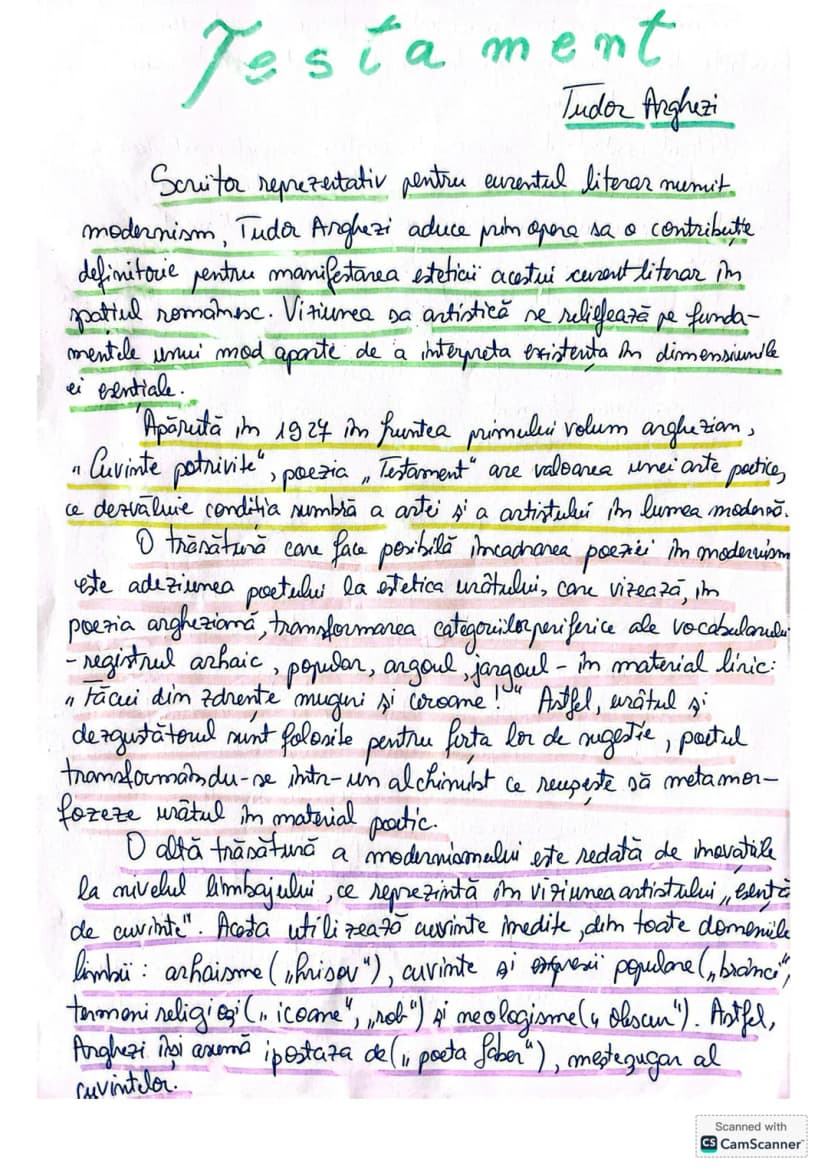 Testament
Tudor Arghezi
Scriitor reprezentativ pentru curentul literar numit
modernism, Tudor Arghezi aduce prin opera sa o contribuție
definitorie pentru manifestarea esteticii acestui curent literar în
spațiul românesc. Viziunea sa artistică se reliefează pe funda-
mentele unui mod aparte de a interpreta existența în dimensiunile
ei esențiale.
Apărută în 1927 în fruntea primului volum arghezian,
„Cuvinte potrivite", poezia „Testament" are valoarea unei arte poetice,
ce dezvăluie condiția sumbră a artei și a artistului în lumea modernă.
O trăsătură care face posibilă încadrarea poeziei în modernism
este adeziunea poetului la estetica urâtului, care vizează, în
poezia argheziană, transformarea categoriilor periferice ale vocabularului
- registrul arhaic, popular, argoul, jargoul - în material liric:
„Făcui din zdrențe muguri și coroane!" Astfel, urâtul și
dezgustătorul sunt folosite pentru forța lor de sugestie, poetul
transformându-se într-un alchimist ce reușește să metamor-
fozeze urâtul în material poetic.
O altă trăsătură a modernismului este redată de inovațiile
la nivelul limbajului, ce reprezintă în viziunea artistului „esență
de cuvinte". Acesta utilizează cuvinte inedite, din toate domeniile
limbii: arhaisme („hrisov"), cuvinte și expresii populare („brânci",
termeni religioși („icoane", „rob") și neologisme („obscur"). Astfel,
Arghezi își asumă ipostaza de („poeta faber"), meșteșugar al
cuvintelor.
Scanned with
CS CamScanner